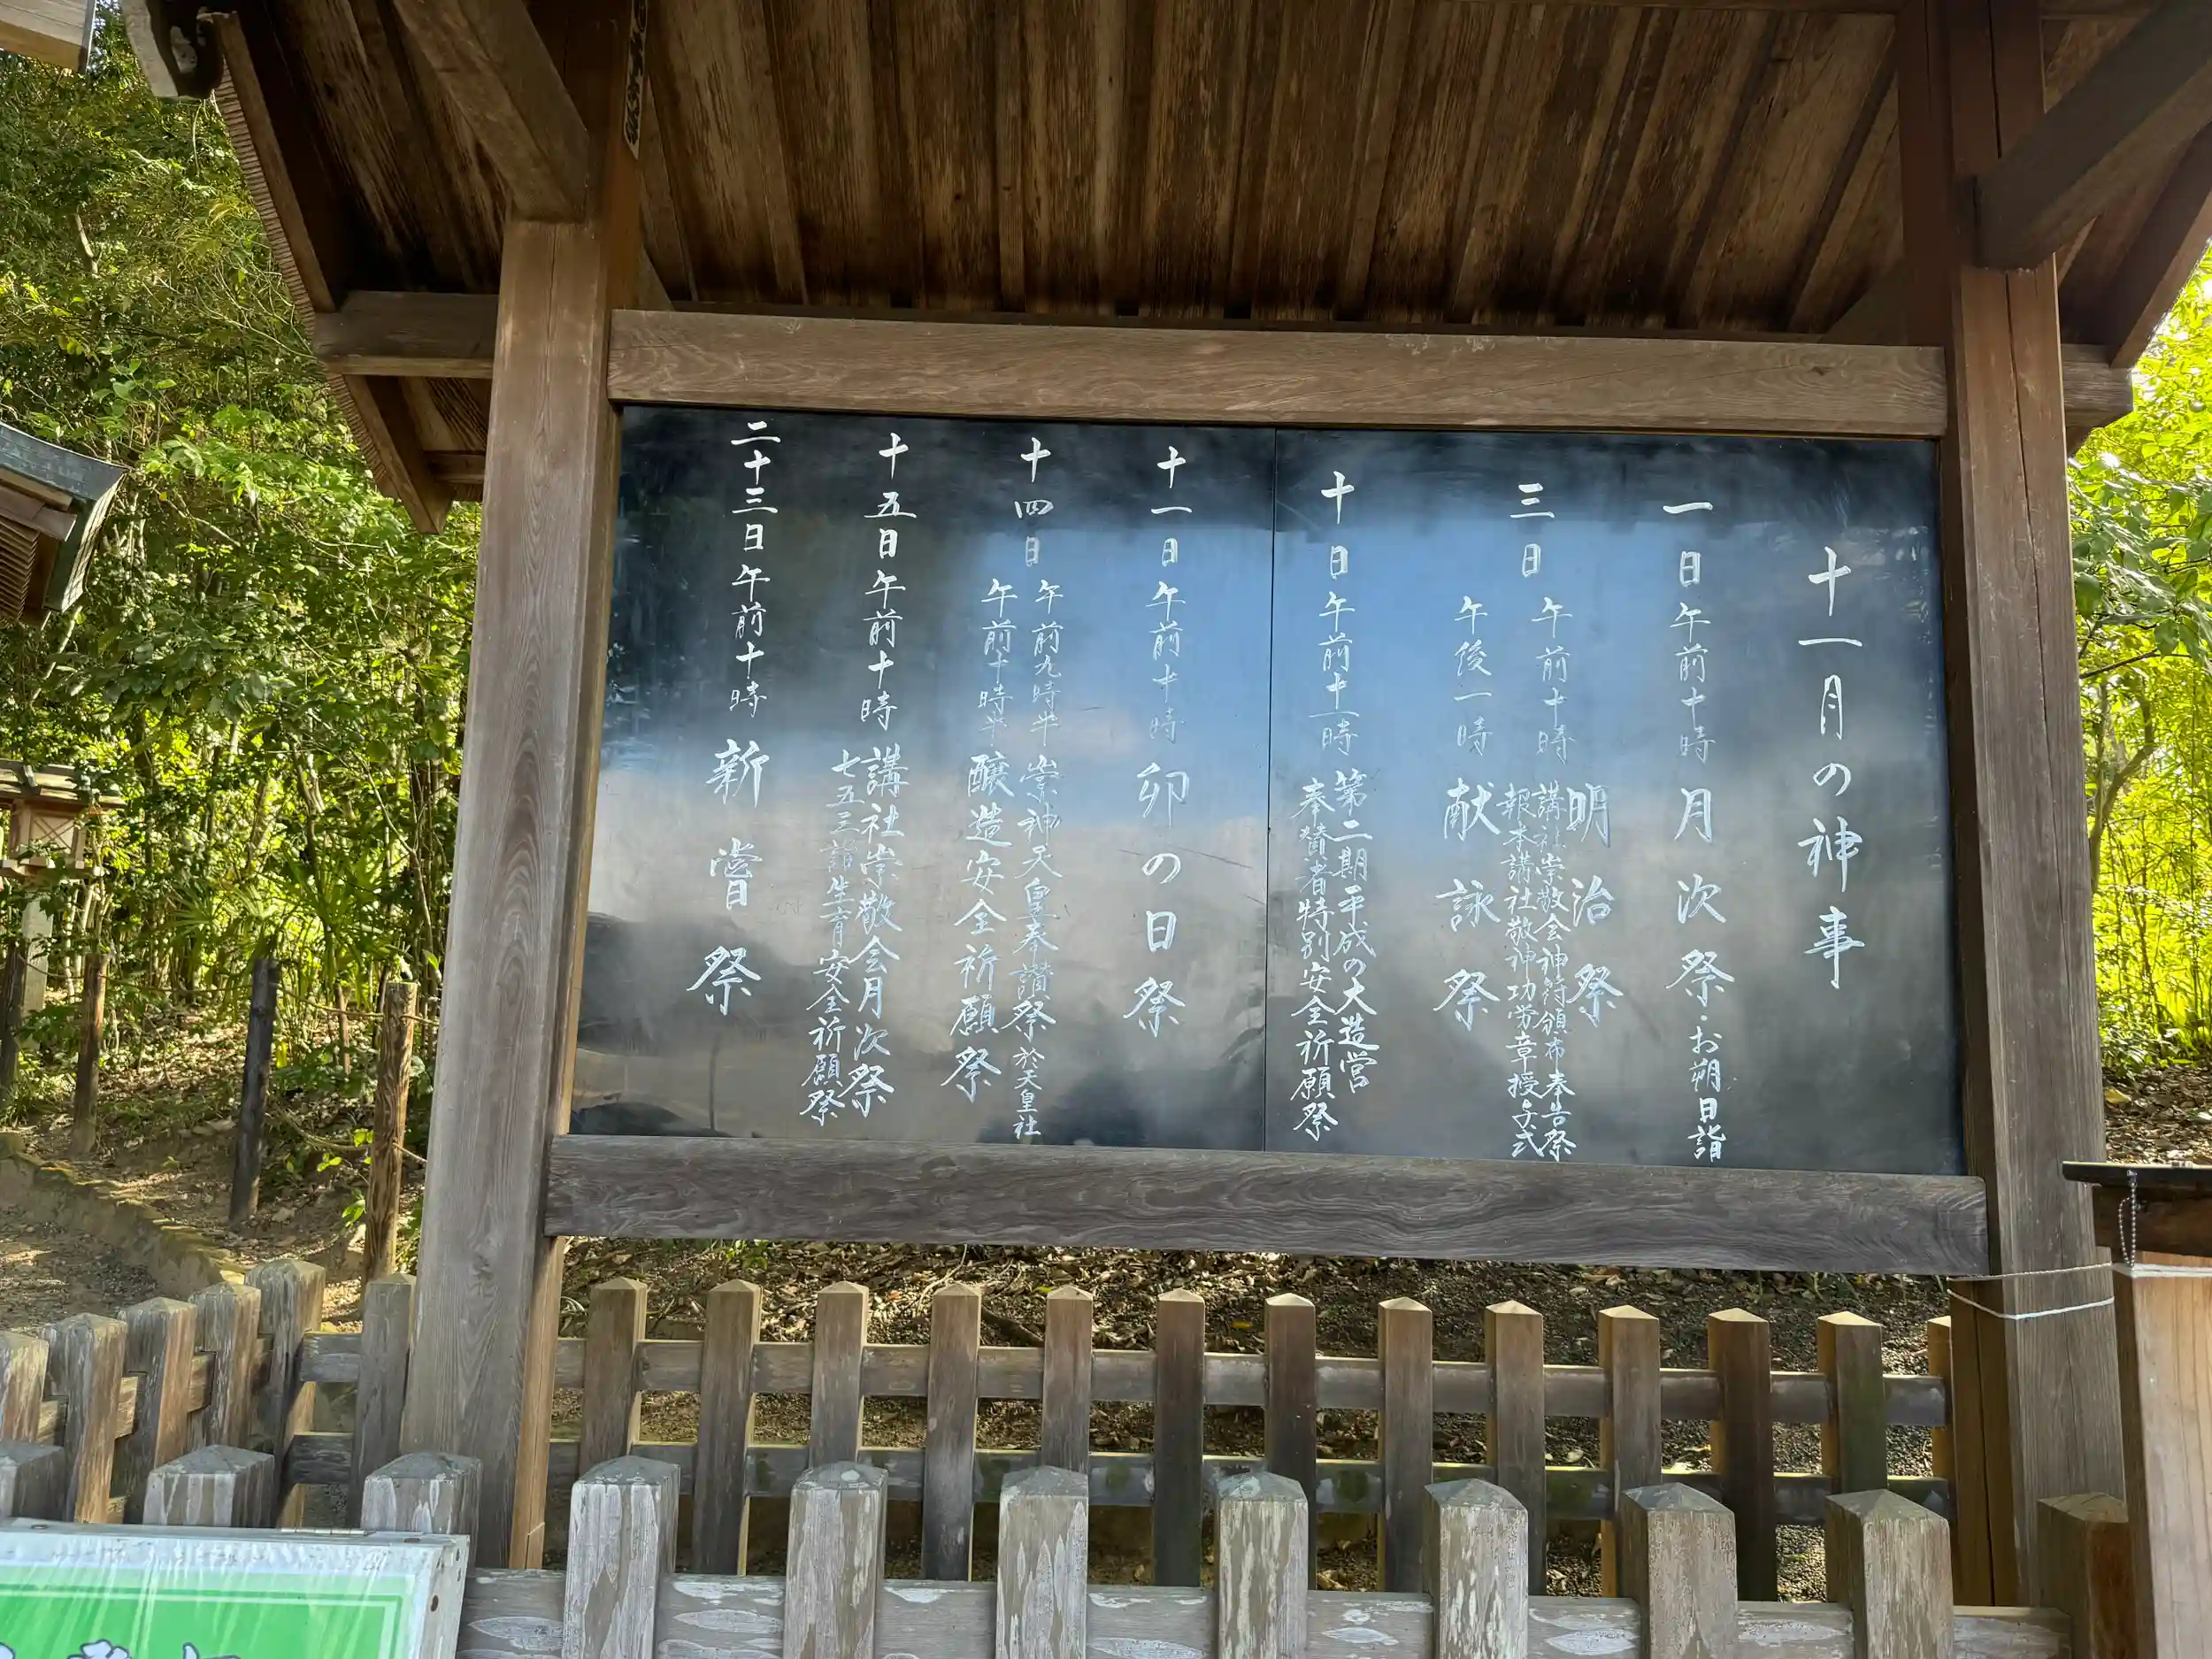 十一月の神事
一日 午前十時 月次祭・お朔日詣
三日 午前十時 明治祭
講社崇敬会神符頒布奉告祭
報本講社敬神功労章授与式
午後一時 献詠祭
十日 午前十一時 第二期平成の大造営
奉賛者特別安全祈願祭
十一日 午前十時 卯の日祭
十四日 午前九時半 崇神天皇奉讃祭 於天皇社
午前十時半 醸造安全祈願祭
十五日 午前十時 講社崇敬会月次祭
七五三詣生育安全祈願祭
二十三日 午前十時 新嘗祭